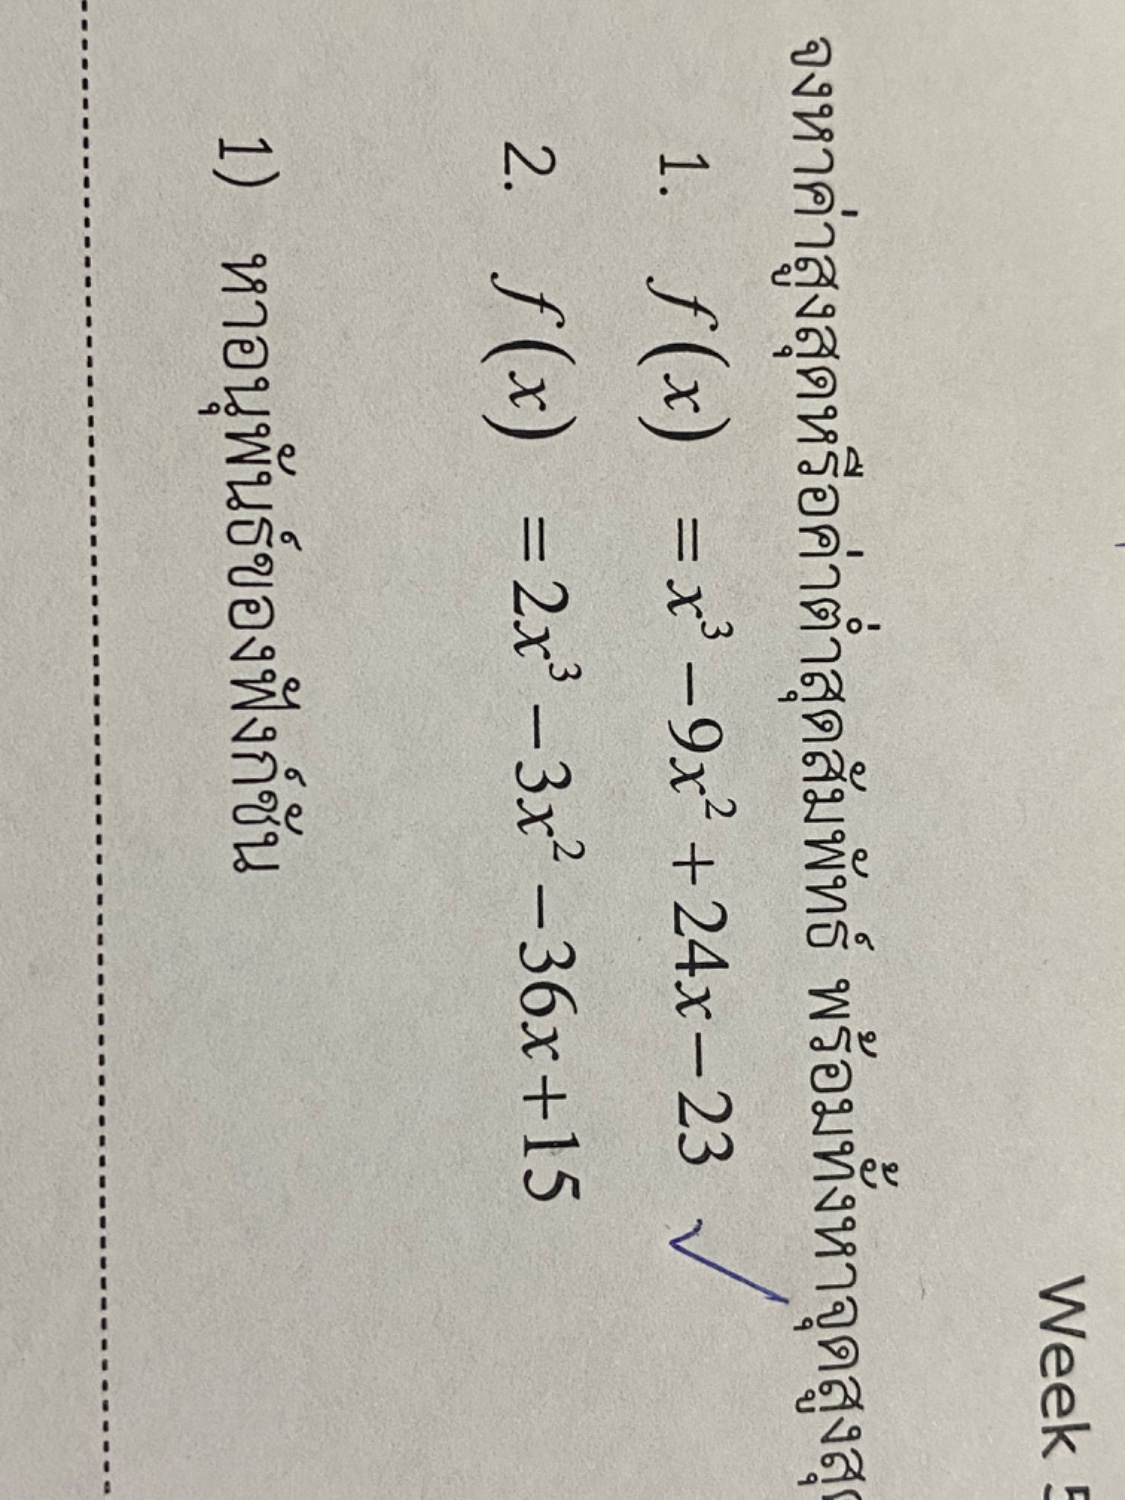 Week 5
จงหาค่าสูงสุดหรือค่าต่ำสุดสัมพัทธ์ พร้อมทั้งหาจุดสูงสุด
1. f(x) = x³ − 9x² + 24x − 23
2. f(x) = 2x³ − 3x² − 36x + 15
1) หาอนุพันธ์ของฟังก์ชัน